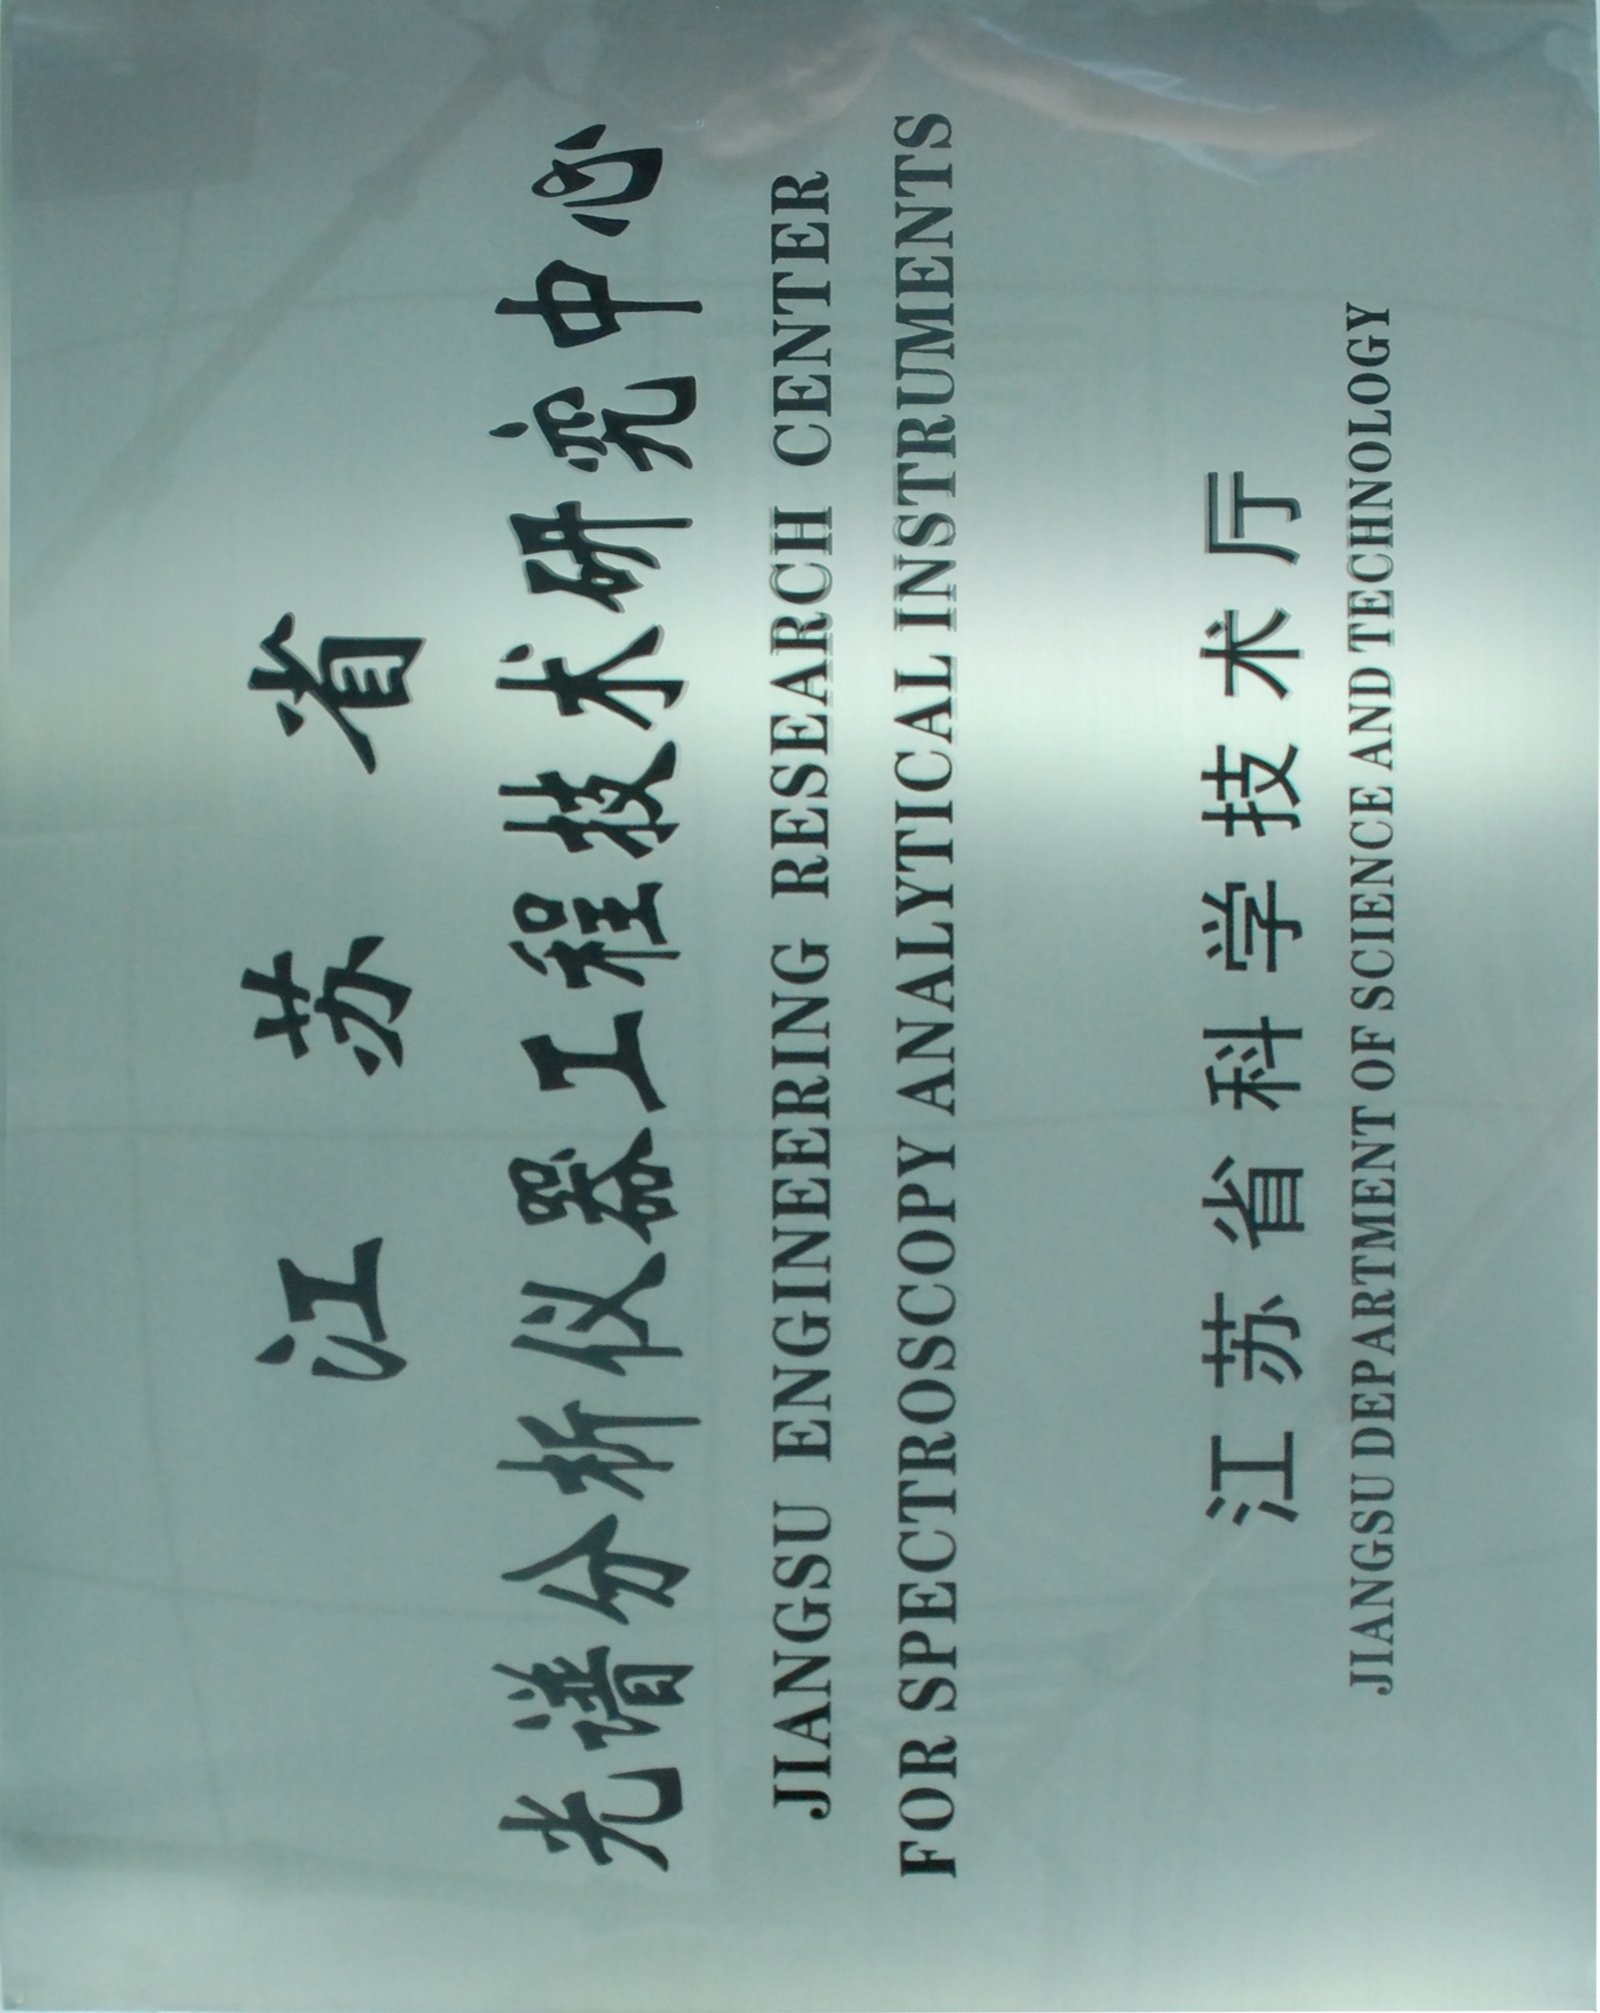 江苏省
光谱分析仪器工程技术研究中心
JIANGSU ENGINEERING RESEARCH CENTER
FOR SPECTROSCOPY ANALYTICAL INSTRUMENTS
江苏省科学技术厅
JIANGSU DEPARTMENT OF SCIENCE AND TECHNOLOGY